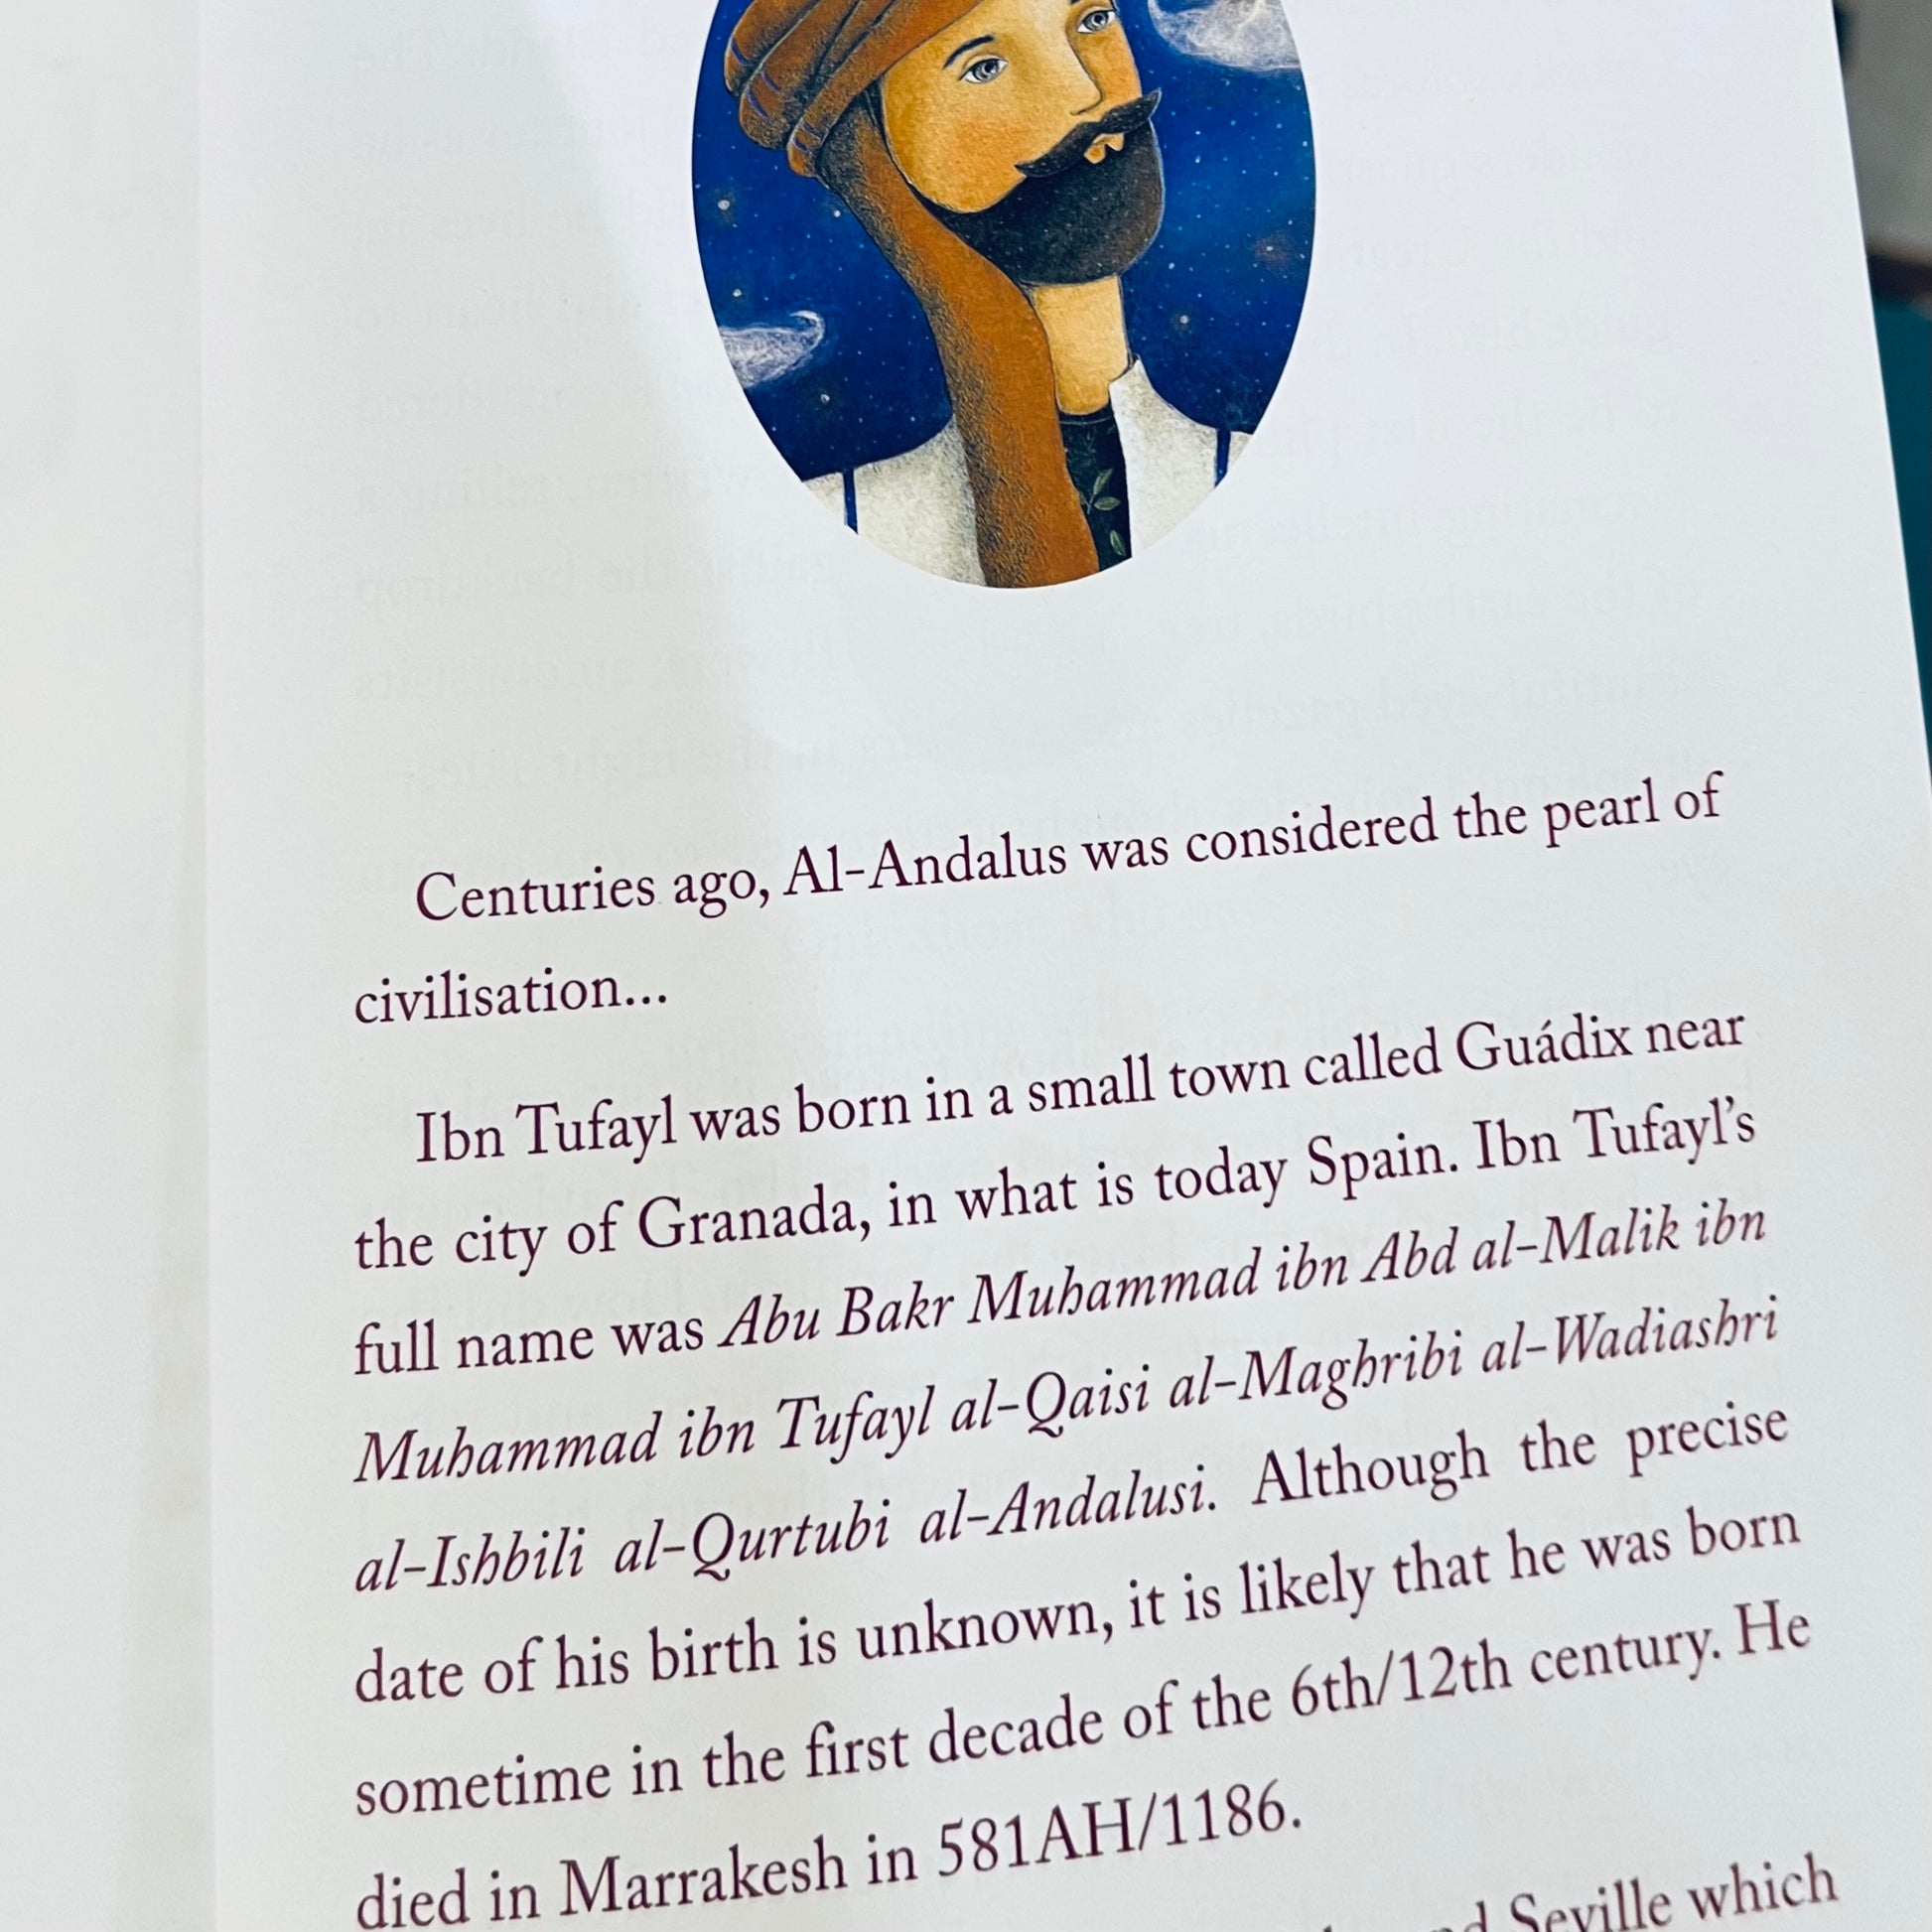 Centuries ago, Al-Andalus was considered the pearl of
civilisation...
Ibn Tufayl was born in a small town called Guádix near
the city of Granada, in what is today Spain. Ibn Tufayl's
full name was Abu Bakr Muhammad ibn Abd al-Malik ibn
Muhammad ibn Tufayl al-Qaisi al-Maghribi al-Wadiashri
al-Ishbili al-Qurtubi al-Andalusi. Although the precise
date of his birth is unknown, it is likely that he was born
sometime in the first decade of the 6th/12th century. He
died in Marrakesh in 581AH/1186.
Seville which